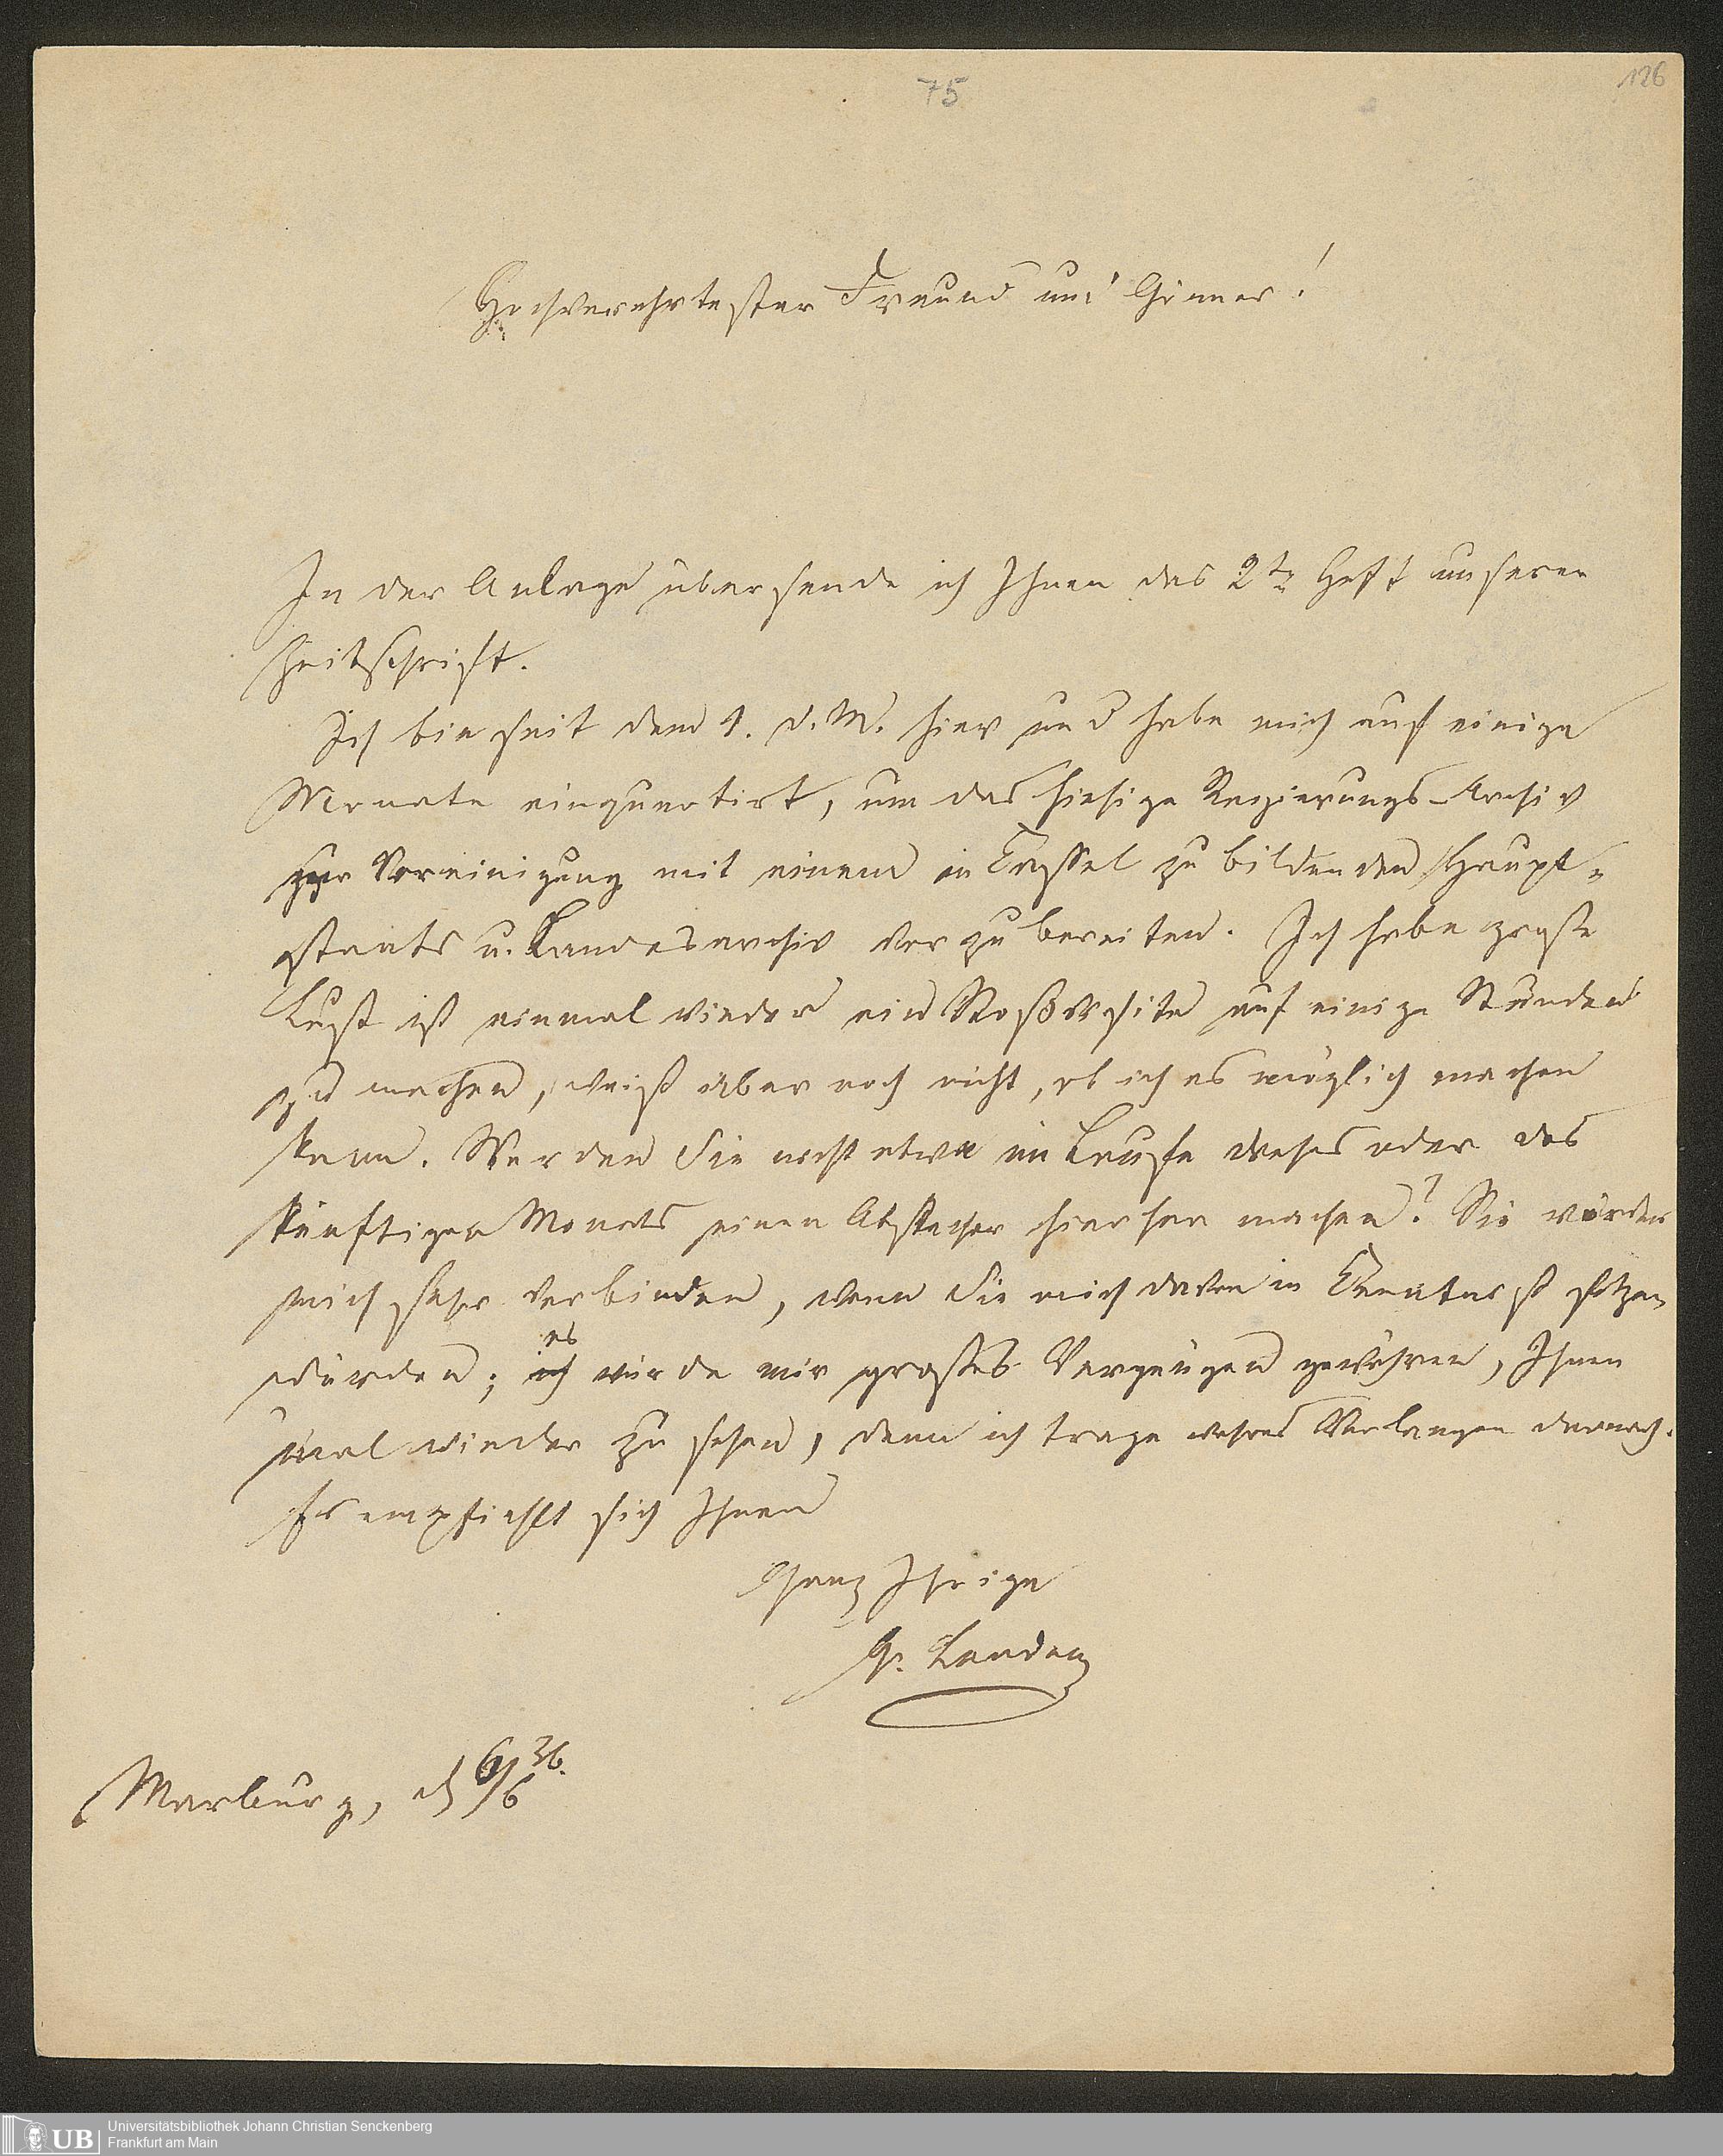 75
126
Hochverehrtester Freund und Gönner!
In der Anlage übersende ich Ihnen das 2te Heft unserer
Zeitschrift.
Ich bin seit dem 1. d. M. hier und habe mich auf einige
Monate einquartirt, um das hiesige Regierungs-Archiv
zur Vereinigung mit einem in Cassel zu bildenden Haupt-
staats u. Landesarchiv vorzubereiten. Ich habe große
Lust einmal wieder auf einige Stunden
zu machen, weiß aber noch nicht, ob ich es möglich machen
kann. Werden Sie nicht etwa im Laufe dieses oder des
künftigen Monats einen Abstecher hierher machen? Sie würden
mich sehr verbinden, wenn Sie mich davon in Kenntniß setzen
es
würden; ich würde mir großes Vergnügen gewähren, Ihnen
mal wieder zu sehen, denn ich trage wahres Verlangen darnach.
Es empfiehlt sich Ihnen
Ganz Ihrige
G. Landau
Marburg, d 6/6 36.
UB
Universitätsbibliothek Johann Christian Senckenberg
Frankfurt am Main